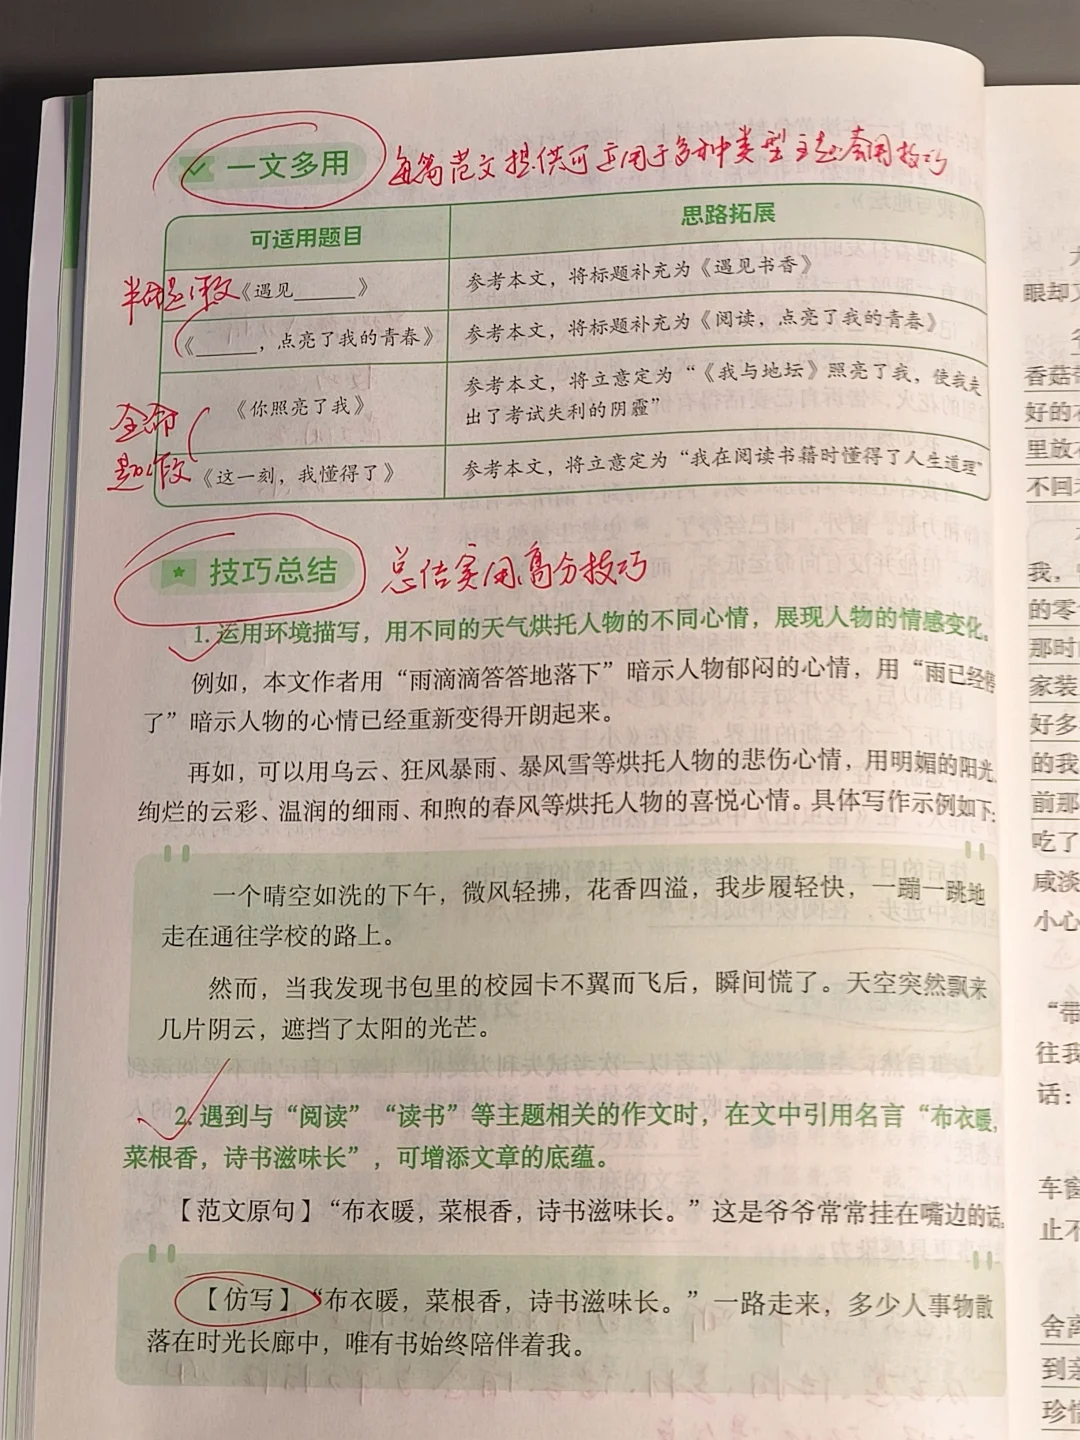 一文多用
每篇范文提供可运用于多种类型主题套用技巧
可适用题目
思路拓展
半命题作文
《遇见______》
参考本文，将标题补充为《遇见书香》
《______，点亮了我的青春》
参考本文，将标题补充为《阅读，点亮了我的青春》
全命
题作文
《你照亮了我》
参考本文，将立意定为“《我与地坛》照亮了我，使我走
出了考试失利的阴霾”
《这一刻，我懂得了》
参考本文，将立意定为“我在阅读书籍时懂得了人生道理”
技巧总结
总结实用高分技巧
1. 运用环境描写，用不同的天气烘托人物的不同心情，展现人物的情感变化。
例如，本文作者用“雨滴滴答答地落下”暗示人物郁闷的心情，用“雨已经停
了”暗示人物的心情已经重新变得开朗起来。
再如，可以用乌云、狂风暴雨、暴风雪等烘托人物的悲伤心情，用明媚的阳光、
绚烂的云彩、温润的细雨、和煦的春风等烘托人物的喜悦心情。具体写作示例如下：
一个晴空如洗的下午，微风轻拂，花香四溢，我步履轻快，一蹦一跳地
走在通往学校的路上。
然而，当我发现书包里的校园卡不翼而飞后，瞬间慌了。天空突然飘来
几片阴云，遮挡了太阳的光芒。
2. 遇到与“阅读”“读书”等主题相关的作文时，在文中引用名言“布衣暖，
菜根香，诗书滋味长”，可增添文章的底蕴。
【范文原句】“布衣暖，菜根香，诗书滋味长。”这是爷爷常常挂在嘴边的话。
【仿写】“布衣暖，菜根香，诗书滋味长。”一路走来，多少人事物散
落在时光长廊中，唯有书始终陪伴着我。
眼却又
香菇
好的
里放
不回
我，
的零
那时
家装
好多
的我
前那
吃了
咸淡
小心
“带
往我
话：
车窗
止不
舍离
到亲
珍惜